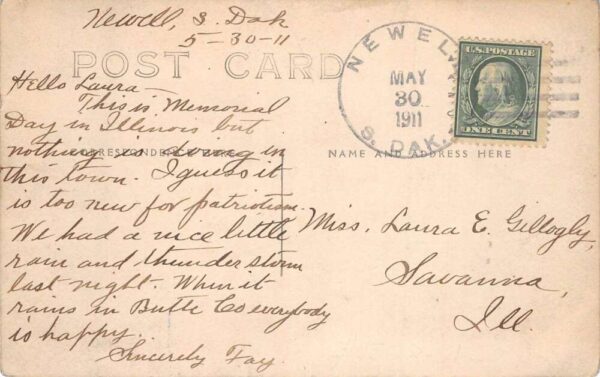 Newell, S. Dak
5-30-11
POST CARD
Hello Laura—
This is Memorial
Day in Illinois but
nothing is doing in
this town. I guess it
is too new for patriotism.
We had a nice little
rain and thunder storm
last night. When it
rains in Butte Co everybody
is happy.
Sincerely Fay.
CORRESPONDENCE HERE
NEWELL
MAY
30
1911
S. DAK.
U.S. POSTAGE
ONE CENT
NAME AND ADDRESS HERE
Miss. Laura E. Gillogly,
Savanna,
Ill.